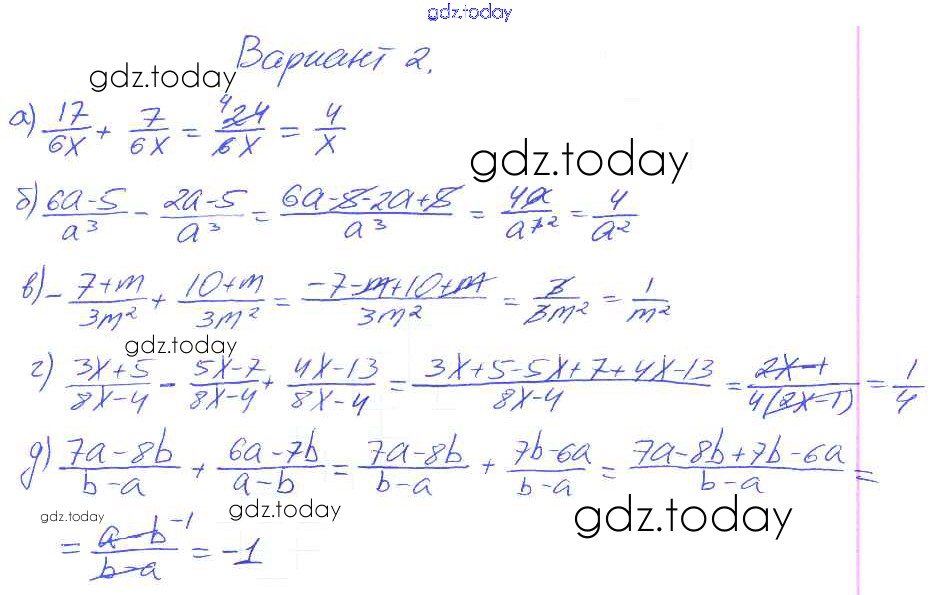 gdz.today
Вариант 2.
gdz.today
а) 17/6x + 7/6x = 24/6x = 4/x
gdz.today
б) (6a-5)/a³ - (2a-5)/a³ = (6a-5-2a+5)/a³ = 4a/a³ ² = 4/a²
в) - (7+m)/3m² + (10+m)/3m² = (-7-m+10+m)/3m² = 3/3m² = 1/m²
gdz.today
г) (3x+5)/(8x-4) - (5x-7)/(8x-4) + (4x-13)/(8x-4) = (3x+5-5x+7+4x-13)/(8x-4) = (2x-1)/(4(2x-1)) = 1/4
д) (7a-8b)/(b-a) + (6a-7b)/(a-b) = (7a-8b)/(b-a) + (7b-6a)/(b-a) = (7a-8b+7b-6a)/(b-a) =
gdz.today gdz.today gdz.today
= (a-b)⁻¹/(b-a) = -1